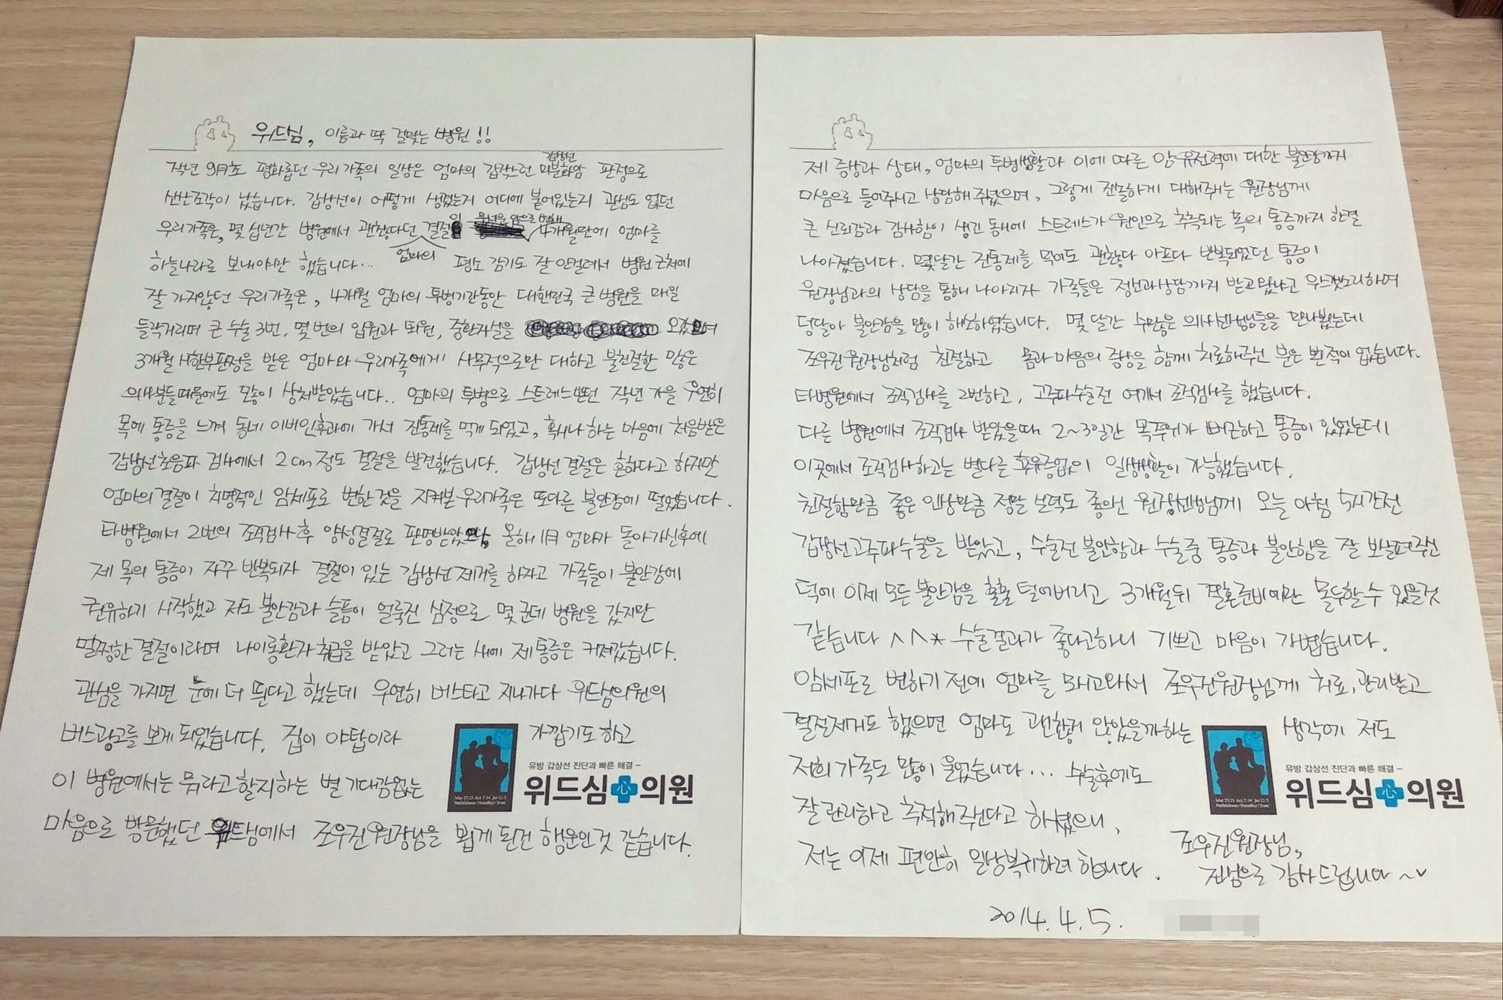 위드심, 이름과 딱 걸맞는 병원!!
작년 9월초 평화롭던 우리가족의 일상은 엄마의 갑작스런 갑상선 미분화암 판정으로
산산조각이 났습니다. 갑상선이 어떻게 생겼는지 어디에 붙어있는지 관심도 없던
우리가족은, 몇 십년간 병원에서 괜찮다던 엄마의 결절이 4개월만에 엄마를
하늘나라로 보내야만 했습니다... 평소 감기도 잘 안걸려서 병원 근처에
잘 가지않던 우리가족은, 4개월 엄마의 투병기간동안 대한민국 큰 병원을 매일
들락거리며 큰 수술 3번. 몇 번의 입원과 퇴원, 중환자실을 오갔으며
3개월 시한부판정을 받은 엄마와 우리가족에게 사무적으로만 대하고 불친절한 많은
의사분들때문에도 많이 상처받았습니다.. 엄마의 투병으로 스트레스받던 작년 가을 우연히
목에 통증을 느껴 동네 이비인후과에 가서 진통제를 먹게 되었고, 혹시나 하는 마음에 처음받은
갑상선초음파 검사에서 2cm 정도 결절을 발견했습니다. 갑상선 결절은 흔하다고 하지만
엄마의 결절이 치명적인 암세포로 변한것을 지켜본 우리가족은 또다른 불안감에 떨었습니다.
타병원에서 2번의 조직검사 후 양성결절로 판명받았으나, 올해 1月 엄마가 돌아가신후에
제 목의 통증이 자꾸 반복되자 결절이 있는 갑상선 제거를 하자고 가족들이 불안감에
권유하기 시작했고 저도 불안감과 슬픔이 얼룩진 심정으로 몇 군데 병원을 갔지만
멀쩡한 결절이라며 나이롱환자 취급을 받았고 그러는 새에 제 통증은 커져갔습니다.
관심을 가지면 눈에 더 띈다고 했는데 우연히 버스타고 지나가다 위드심의원의
버스광고를 보게 되었습니다. 집이 야탑이라 가깝기도 하고
이 병원에서는 뭐라고 할지하는 별 기대감없는
마음으로 방문했던 위드심에서 조우진원장님을 뵙게 된건 행운인것 같습니다.
유방 갑상선 진단과 빠른 해결 -
위드심의원
제 증상과 상태, 엄마의 투병생활과 이에 따른 암 유전력에 대한 불안감까지
마음으로 들어주시고 상담해 주셨으며, 그렇게 진실하게 대해주는 원장님께
큰 신뢰감과 감사함이 생긴 동시에 스트레스가 원인으로 추측되는 목의 통증까지 한결
나아졌습니다. 몇달간 진통제를 먹어도 괜찮다 아프다 반복되었던 통증이
원장님과의 상담을 통해 나아지자 가족들은 정신과상담까지 받고왔냐고 우스갯소리하며
덩달아 불안감을 많이 해소하였습니다. 몇 달간 수많은 의사선생님들을 만나봤는데
조우진원장님처럼 친절하고 몸과 마음의 증상을 함께 치료해주신 분은 뵌적이 없습니다.
타병원에서 조직검사를 2번하고, 고주파수술전 여기서 조직검사를 했습니다.
다른 병원에서 조직검사 받았을때 2~3일간 목부위가 뻐근하고 통증이 있었는데
이곳에서 조직검사하고는 별다른 후유증없이 일상생활이 가능했습니다.
친절함만큼 좋은 인상만큼 정말 실력도 좋으신 원장선생님께 오늘 아침 5시간전
갑상선고주파수술을 받았고, 수술전 불안함과 수술중 통증과 불안함을 잘 보살펴주신
덕에 이제 모든 불안감을 훌훌 털어버리고 3개월뒤 결혼준비에만 몰두할수 있을것
같습니다 ^^* 수술결과가 좋다고하니 기쁘고 마음이 가볍습니다.
암세포로 변하기 전에 엄마를 모시고와서 조우진원장님께 치료, 관리받고
결절제거도 했으면 엄마도 괜찮지 않았을까하는 생각에 저도
저희 가족도 많이 울었습니다... 수술후에도
잘 관리하고 추적해 주신다고 하셨으니,
저는 이제 편안히 일상복귀하려 합니다.
유방 갑상선 진단과 빠른 해결 -
위드심의원
조우진원장님,
진심으로 감사드립니다 ~
2014. 4. 5.